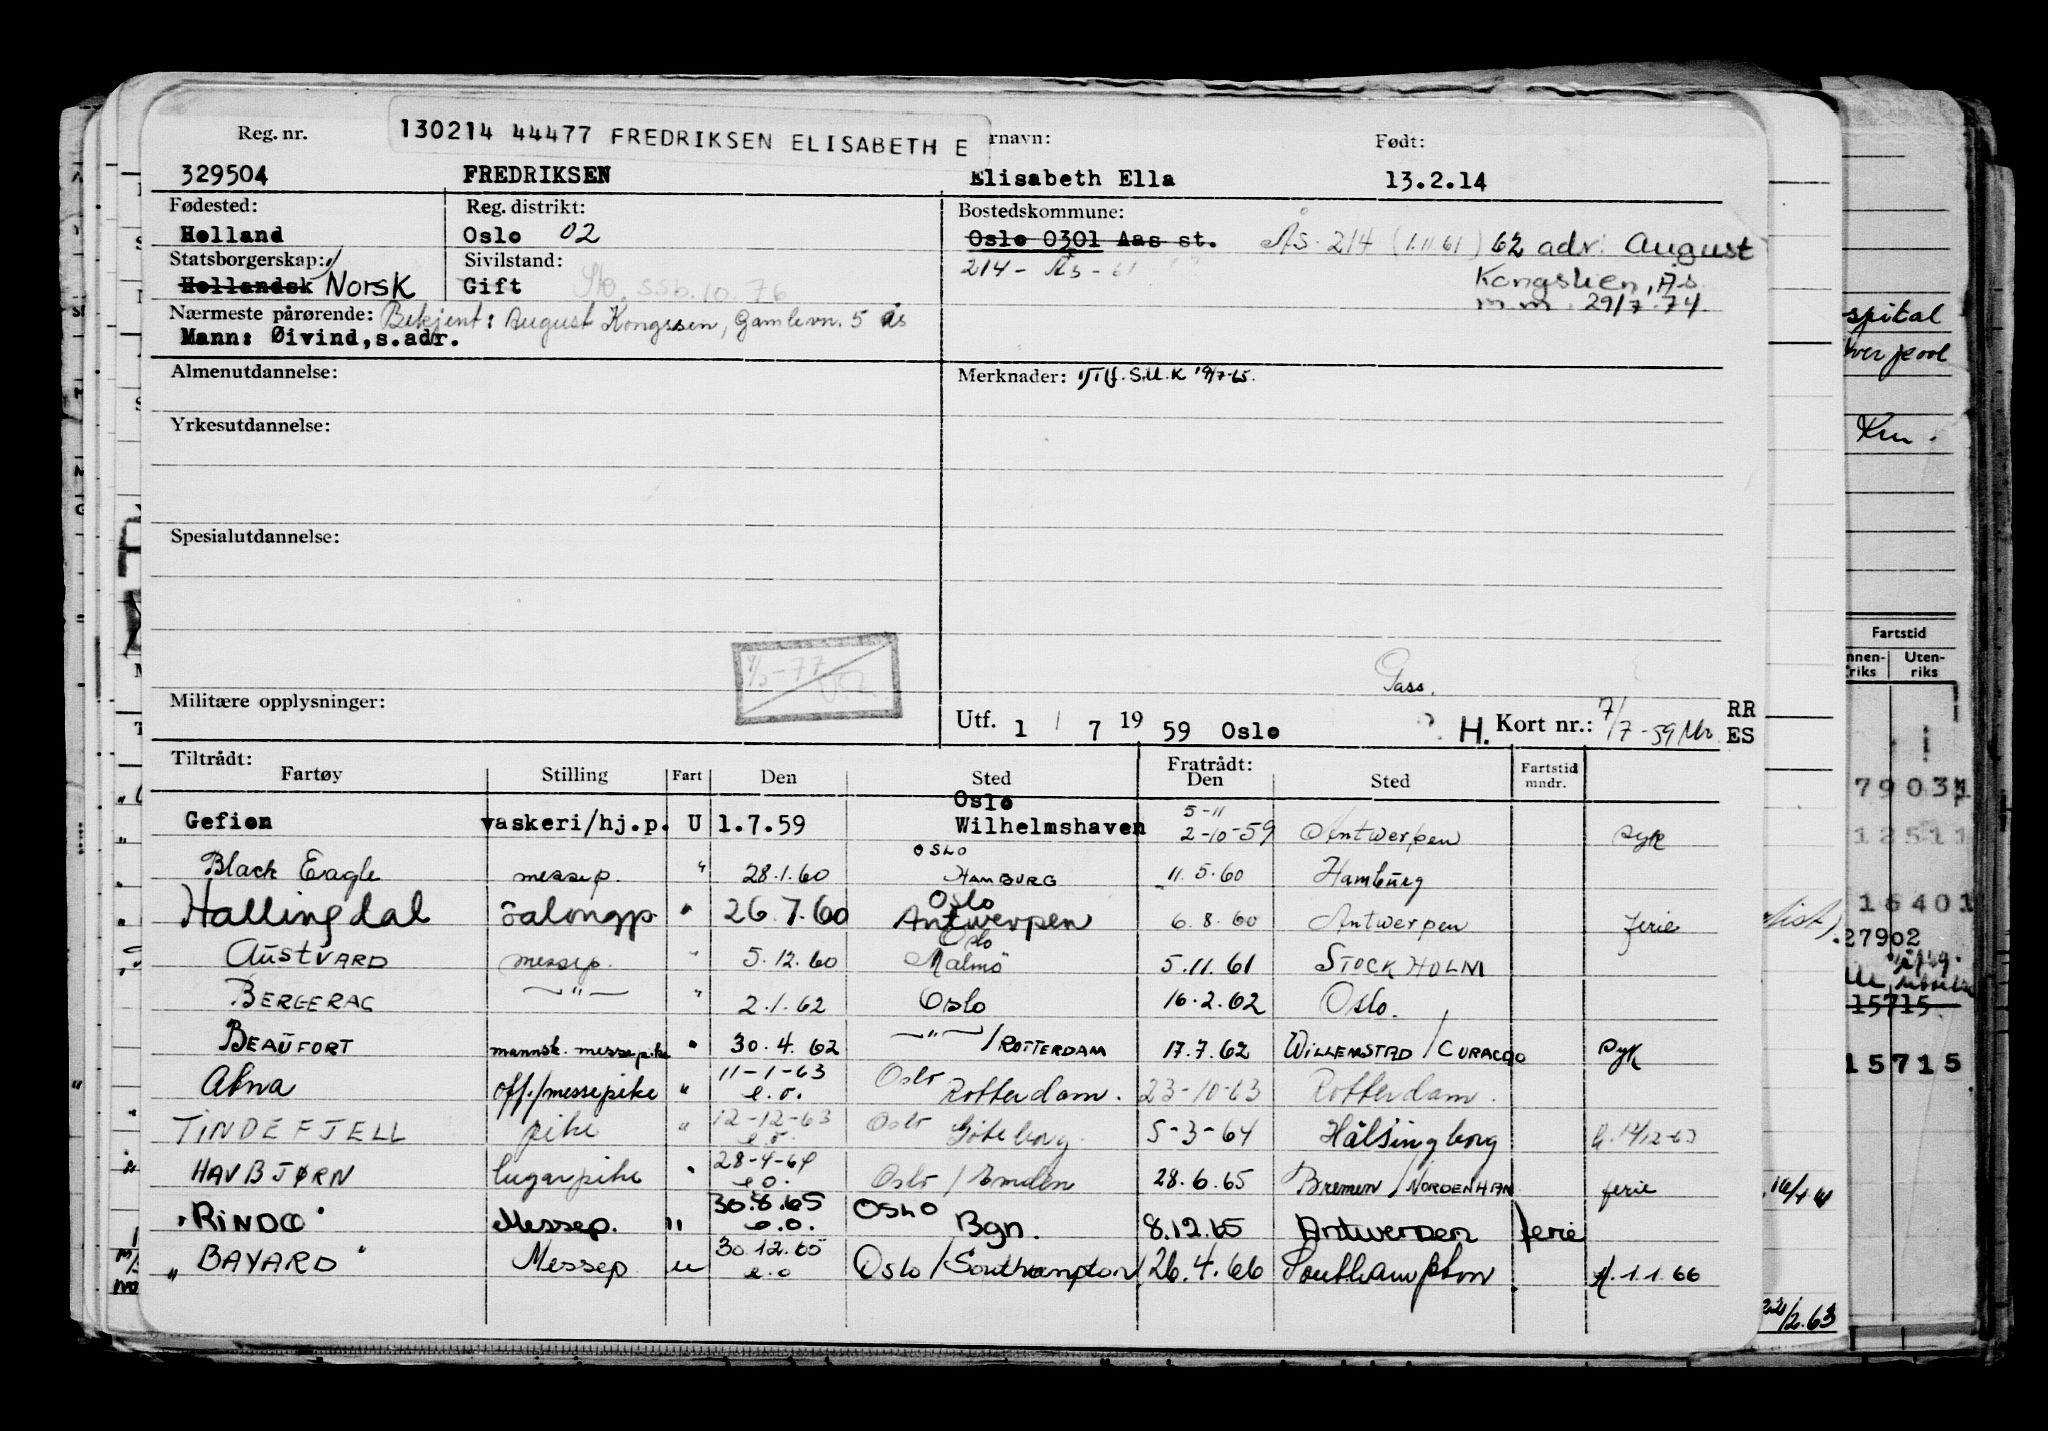 130214 44477 FREDRIKSEN ELISABETH E
Reg. nr. rnavn: Født:
329504 FREDRIKSEN Elisabeth Ella 13.2.14
Fødested: Reg. distrikt: Bostedskommune:
Holland Oslo 02 Oslo 0301 Aas st. Ås 214 (1.11.61) 62 adr: August
Statsborgerskap: Sivilstand: 214 - Ås - 61 Kongslien, Ås
Hollandsk Norsk Gift ssb. 10. 76 m.m. 29/7.74.
Nærmeste pårørende: Bekjent: August Kongssen, Gamlevn. 5 Ås
Mann: Øivind, s.adr.
Almenutdannelse: Merknader: S.U.K 19/7-65.
Yrkesutdannelse:
Spesialutdannelse:
9/3-77
Pass.
Militære opplysninger: Utf. 1 / 7 19 59 Oslo H. Kort nr.: 7/7-59 RR
ES
Tiltrådt: Fratrådt:
Fartøy Stilling Fart Den Sted Den Sted Fartstid mndr.
Gefion vaskeri/hj.p. U 1.7.59 Oslo Wilhelmshaven 5-11 2-10-59 Antwerpen syk
Black Eagle messep. " 28.1.60 OSLO HAMBURG 11.5.60 Hamburg
Hallingdal Salongp. " 26.7.60 Oslo Antwerpen 6.8.60 Antwerpen ferie
AUSTVARD messep. " 5.12.60 Oslo Malmö 5.11.61 STOCKHOLM
BERGERAC —"— " 2.1.62 Oslo 16.2.62 Oslo.
BEAUFORT mannsk. messepike " 30.4.62 —"— / ROTTERDAM 17.7.62 WILLEMSTAD / CURACAO syk
Abna off./messepike " 11-1-63 e.o. Oslo Rotterdam. 23-10-63 Rotterdam.
TINDEFJELL pike " 12-12-63 e.o. Oslo Göteborg 5-3-64 Hälsingborg 14/12-63
HAVBJØRN lugarpike " 28-4-64 e.o. Oslo / Emden 28.6.65 Bremen / NORDENHAM ferie
"RINDO" Messep. " 30.8.65 e.o. OSLO Bgn. 8.12.65 Antwerpen ferie
"BAYARD" Messep u 30.12.65 e.o Oslo / Southampton 26.4.66 Southampton 1.1.66
spital
Km.
Fartstid
Uten-
riks
12511
16401
27902
15715
15715